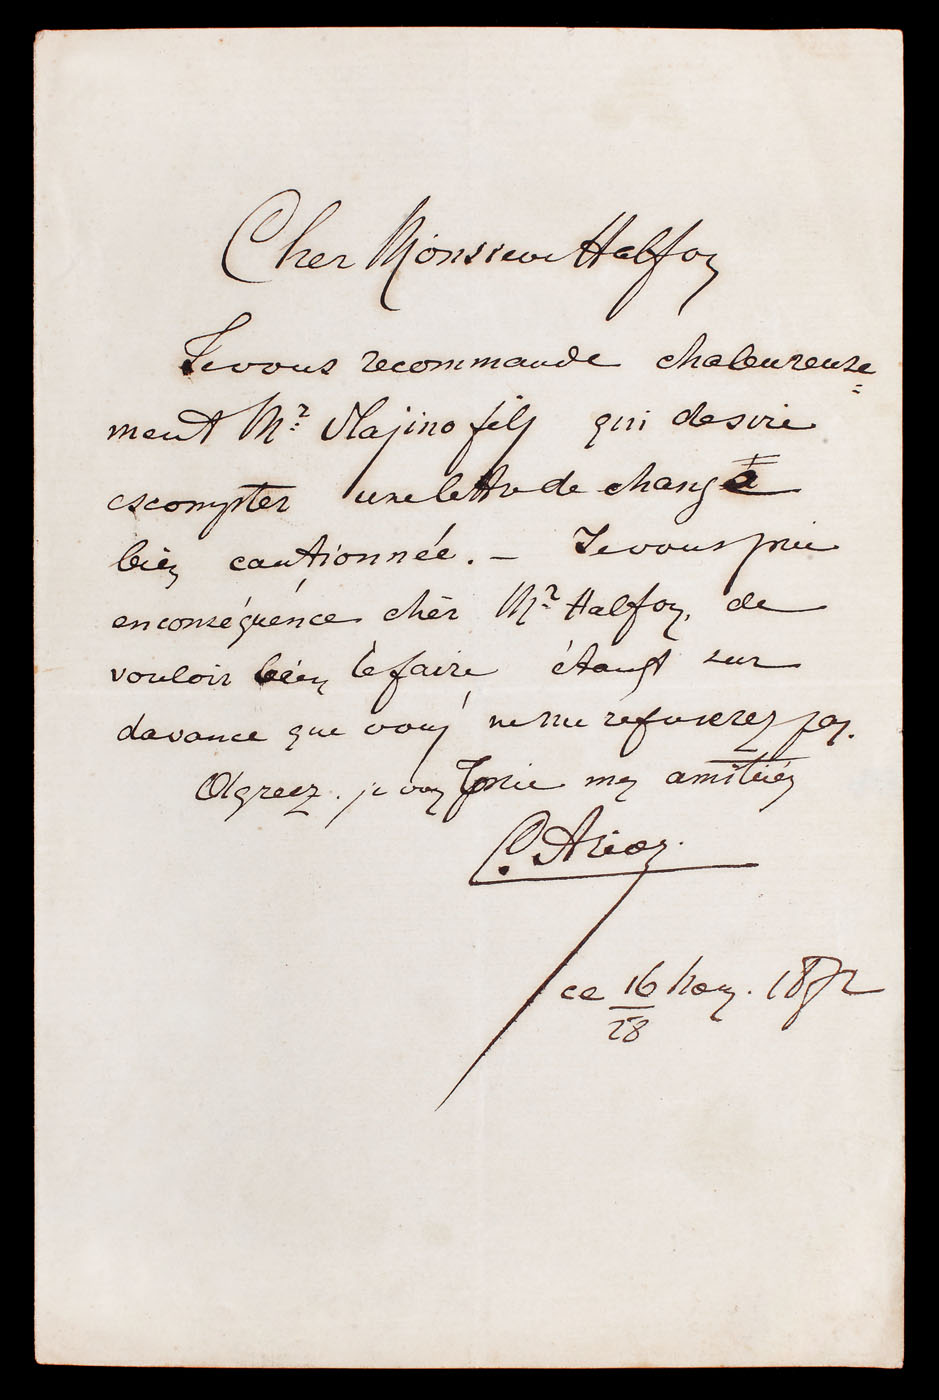 Cher Monsieur Halfon
Je vous recommande chaleureuse=
ment Mr. fils qui desire
escompter une lettre de change
bien cautionnée. – Je vous prie
en conséquénce cher Mr. Halfon, de
vouloir bien le faire étant sur
davance que vous ne me refuserez pas.
Agreez. je vous prie mes amitiés
ce 16/28 Nov. 1872